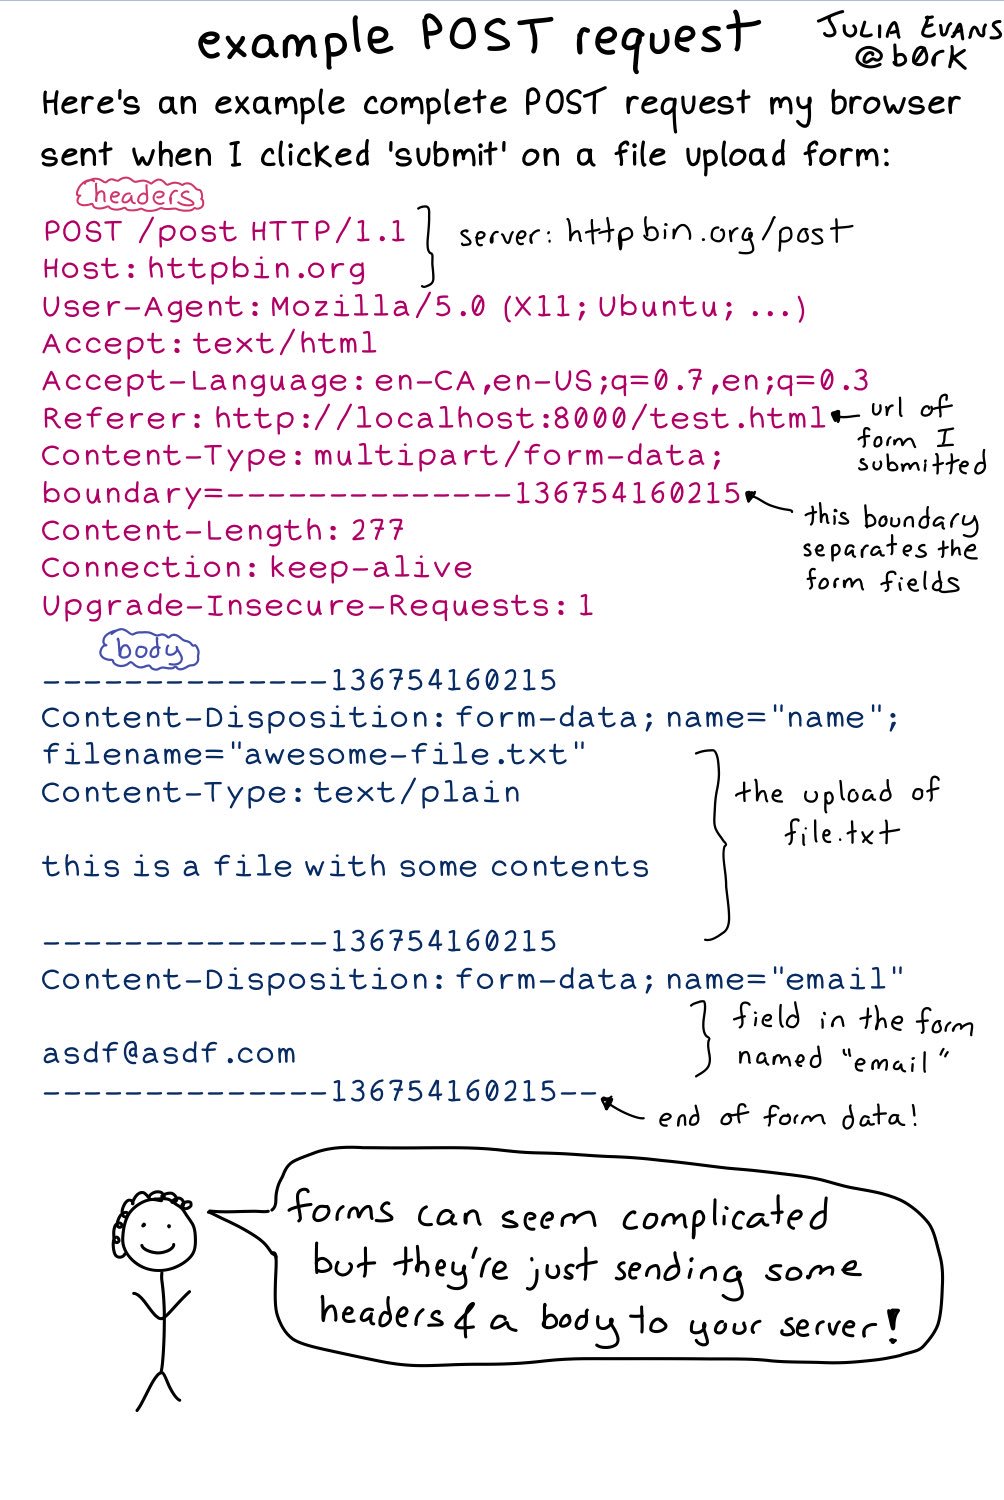 example POST request
JULIA EVANS
@b0rk
Here's an example complete POST request my browser
sent when I clicked 'submit' on a file upload form:
headers
POST /post HTTP/1.1
Host: httpbin.org
server: httpbin.org/post
User-Agent: Mozilla/5.0 (X11; Ubuntu; ...)
Accept: text/html
Accept-Language: en-CA,en-US;q=0.7,en;q=0.3
Referer: http://localhost:8000/test.html
url of
form I
submitted
Content-Type: multipart/form-data;
boundary=--------------136754160215
this boundary
separates the
form fields
Content-Length: 277
Connection: keep-alive
Upgrade-Insecure-Requests: 1
body
--------------136754160215
Content-Disposition: form-data; name="name";
filename="awesome-file.txt"
Content-Type: text/plain
the upload of
file.txt
this is a file with some contents
--------------136754160215
Content-Disposition: form-data; name="email"
field in the form
named "email"
asdf@asdf.com
--------------136754160215--
end of form data!
forms can seem complicated
but they're just sending some
headers & a body to your server!